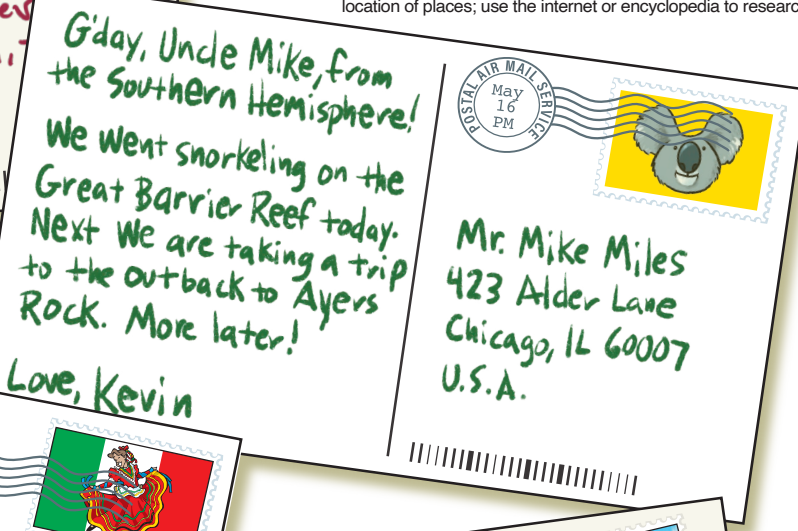 location of places; use the internet or encyclopedia to researc
G'day, Uncle Mike, from
the Southern Hemisphere!
We Went snorkeling on the
Great Barrier Reef today.
Next We are taking a trip
to the outback to Ayers
Rock. More later!
Love, Kevin
POSTAL AIR MAIL SERVICE
May
16
PM
Mr. Mike Miles
423 Alder Lane
Chicago, IL 60007
U.S.A.